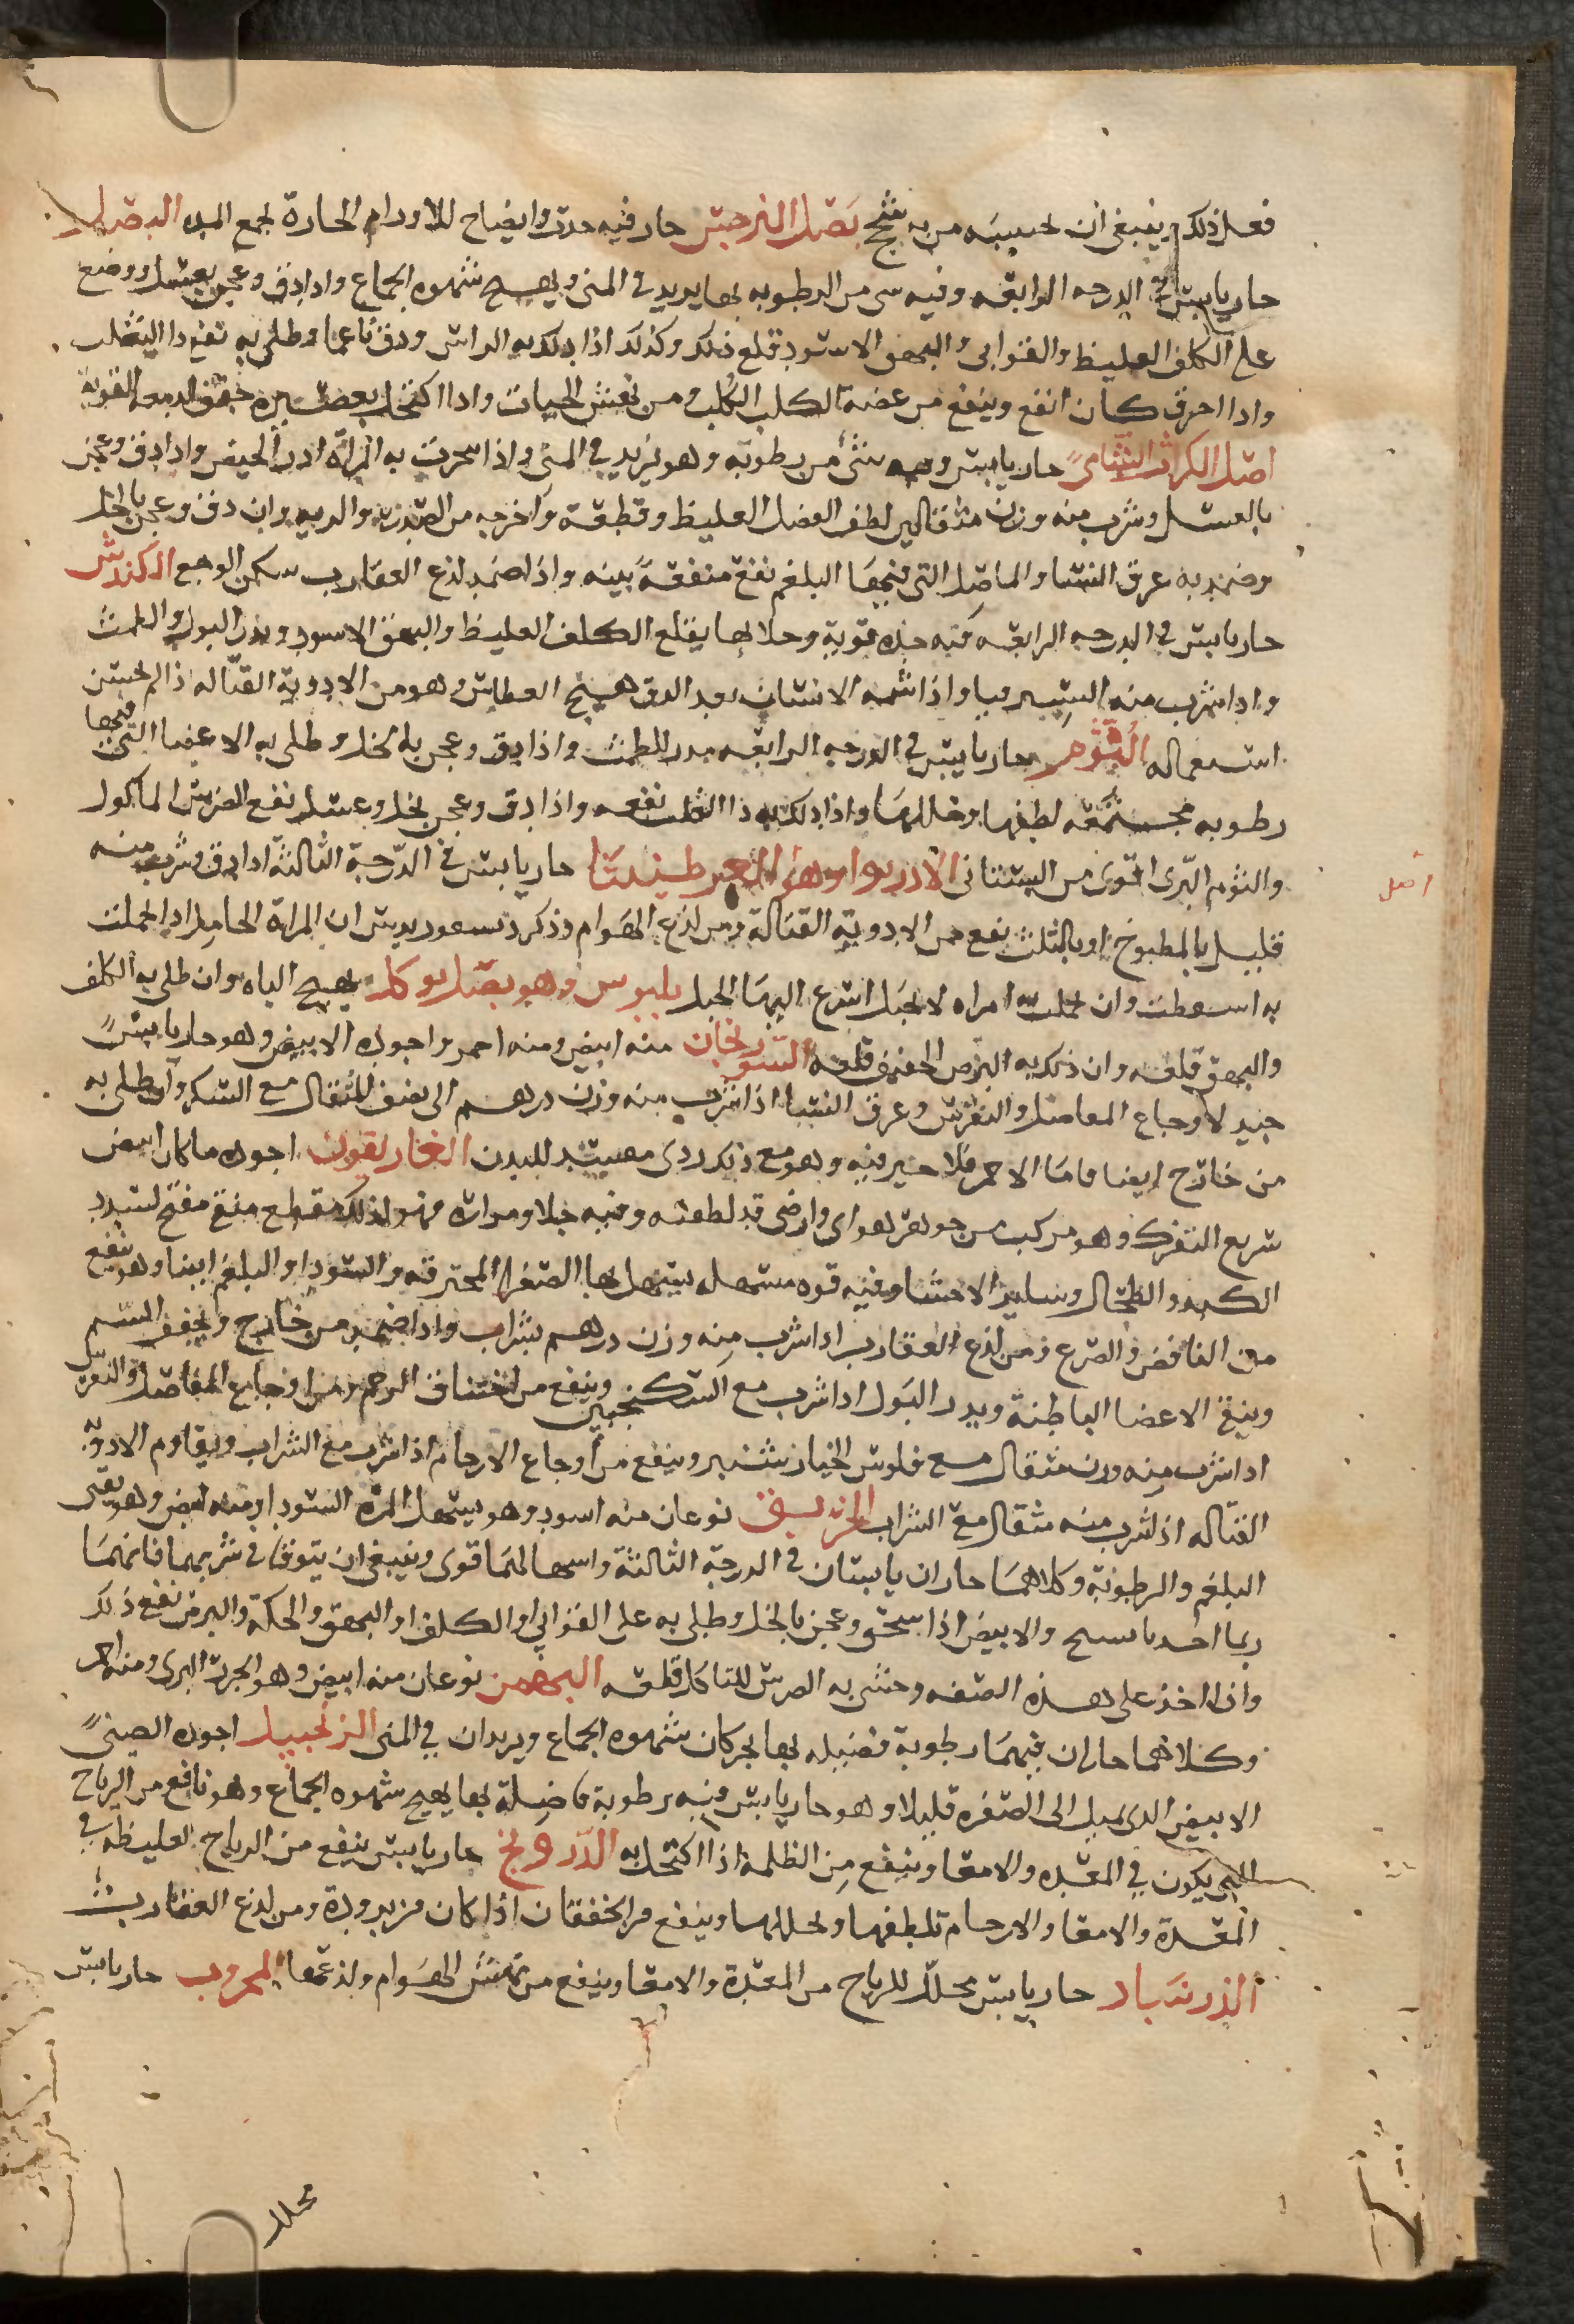 فعل ذلك وينبغى ان يحتنبه من به سحج بصل النرجس حار فيه حدة وانضاح للاورام الحارة لجمع المده البصل
حار يابس فى الدرجه الرابعه وفيه سى من الرطوبه بها يزيد فى المنى ويهيج شهوه الجماع واذا دق وعجن بعسل ووضع
على الكلف الغليظ والقوابى والبهق الاسود قلع ذلك وكذلك اذا دلك به الراس ودق ناعما وطلى به نفع دا الثعلب
واذا احرق كان انفع وينفع من عضه الكلب الكلب ومن نهش الحيات واذا اكتحل بعصيره جفف الدمعه القوية
اصل الكراث الشامى حار يابس وفيه شئ من رطوبه وهو يزيد فى المنى واذا بخرت به المراة ادر الحيض واذا دق وعجن
بالعسل وشرب منه وزن مثقالين لطف الفضل الغليظ وقطعة واخرجه من الصدر والريه وان دق وعجن بالخل
وضمد به عرق النسا والمفاصل التى فيها البلغم نفع منفعة بينه واذا ضمد لذع العقارب سكن الوجع الكندس
حار يابس فى الدرجه الرابعه فيه حده قوية وجلا بها يقلع الكلف الغليظ والبهق الاسود ويدر البول والطمث
واذا شرب منه اليسير قيا واذا شمه الانسان بعد الدق هيج العطاس وهو من الادوية القتاله اذا لم يحسن
استعماله الثوم حار يابس فى الدرجه الرابعه مدر للطمث واذا دق وعجن بالخل وطلى به الاعضا التى فيها
رطوبه مجتمعه لطفها وحللها واذا دلك به دا الثعلب نفعه واذا دق وعجن بخل وعسل نفع الضرس الماكول
والثوم البرى اقوى من البستانى الاذربوا وهو العرطنيثا حار يابس فى الدرجة الثالثة اذا دق وشرب منه
اصل
قليل بالمطبوخ او بالمثلث نفع من الادوية القتالة ومن لذع الهوام وذكر ديسقوريدس ان المراة الحامل اذا احتملت
به اسقطت وان حملت به امراه لا تحبل اسرع اليها الحبل بلبوس وهو بصل يوكل يهيج الباه وان طلى به الكلف
والبهق قلعه وان دلك به البرص الخفيف قلعه السورنجان منه ابيض ومنه احمر واجوده الابيض وهو حار يابس
جيد لاوجاع المفاصل والنقرس وعرق النسا اذا شرب منه وزن درهم الى نصف المثقال مع السكر واذا طلى به
من خارج ايضا فاما الاحمر فلا خير فيه وهو مع ذلك ردى مفسد للبدن الغاريقون اجوده ما كان ابيض
سريع التفرك وهو مركب من جوهر هواى وارضى قد لطفته وفيه جلا ومراره فهو لذلك مقطع منق مفتح لسدد
الكبد والطحال وساير الاحشا وفيه قوه مسهله يسهل بها الصفرا المحترقه والسودا والبلغم ايضا وهو ينفع
من النافض والصرع ومن لذع العقارب اذا شرب منه وزن درهم بشراب واذا ضمد من خارج ويجفف السم
وينقى الاعضا الباطنة ويدر البول اذا شرب مع السكنجبين وينفع من اختناق الرحم ومن اوجاع المفاصل والنقرس
اذا شرب منه وزن مثقال مع فلوس الخيار شنبر وينفع من اوجاع الارحام اذا شرب مع الشراب ويقاوم الادوية
القتاله اذا شرب منه مثقال مع الشراب الخربق نوعان منه اسود وهو يسهل المرة السودا ومنه ابيض وهو يقى
البلغم والرطوبة وكلاهما حاران يابسان فى الدرجة الثالثة واسهالهما قوى وينبغى ان يتوقا فى شربهما فانهما
ربما احدثا تشنج والابيض اذا سحق وعجن بالخل وطلى به على القوابى او الكلف او البهق والحكة والبرص نفع ذلك
واذا اخذ على هذه الصفه وحشى به الضرس المتاكل قلعه البهمن نوعان منه ابيض وهو الجزر البرى ومنه احمر
وكلاهما حاران فيهما رطوبة فضليه بها يحركان شهوه الجماع ويزيدان فى المنى الزنجبيل اجوده الصينى
الابيض الذى يميل الى الصفره قليلا وهو حار يابس فيه رطوبة فاضلة بها يهيج شهوه الجماع وهو نافع من الرياح
التى يكون فى المعده والامعا وينفع من الظلمة اذا اكتحل به الدرونج حار يابس ينفع من الرياح الغليظه فى
المعدة والامعا والارحام تلطفها وتحللها وينفع من الخفقان اذا كان من برودة ومن لذع العقارب
الزرنباد حار يابس محلل للرياح من المعدة والامعا وينفع من نهش الهوام ولذعها المحروت حار يابس
محلل